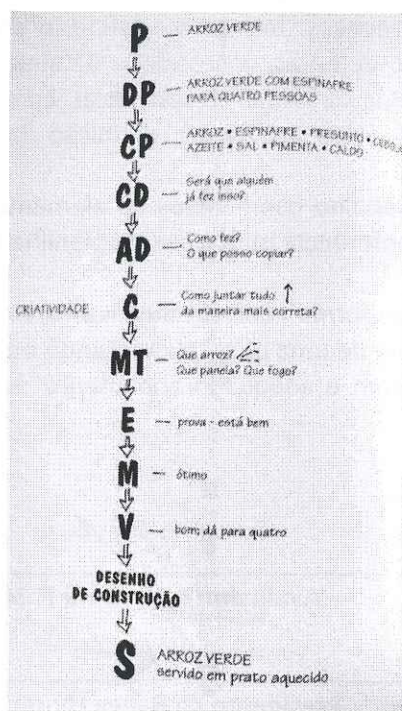 P — ARROZ VERDE
DP — ARROZ VERDE COM ESPINAFRE
PARA QUATRO PESSOAS
CP — ARROZ • ESPINAFRE • PRESUNTO • CEBOLA
AZEITE • SAL • PIMENTA • CALDO
CD — Será que alguém
já fez isso?
AD — Como fez?
O que posso copiar?
CRIATIVIDADE C — Como juntar tudo
da maneira mais correta?
MT — Que arroz?
Que panela? Que fogo?
E — prova - está bem
M — ótimo
V — bom; dá para quatro
DESENHO
DE CONSTRUÇÃO
S ARROZ VERDE
servido em prato aquecido